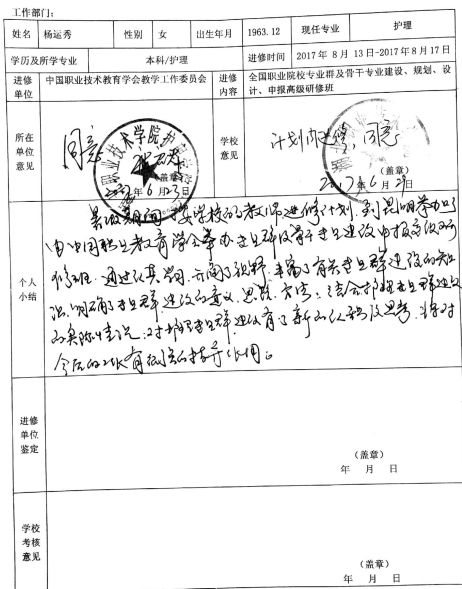 工作部门：
姓名 杨运秀 性别 女 出生年月 1963.12 现任专业 护理
学历及所学专业 本科/护理 进修时间 2017年8月13日-2017年8月17日
进修单位 中国职业技术教育学会教学工作委员会 进修内容 全国职业院校专业群及骨干专业建设、规划、设
计、申报高级研修班
所在单位意见 同意 （盖章） 年6月23日
学校意见 计划内进修，同意 （盖章） 2017年6月2日
个人小结
暑假期间，按学校的教师进修计划，到昆明参加了
由中国职业教育学会举办专业群及骨干专业建设申报高级研
修班。通过学习，开阔了视野，丰富了有关专业群建设的知
识，明确了专业群建设的意义、思路、方法；结合护理专业群建设
的实际情况，对护理专业群建设有了新的认识及思考，将对
今后的工作有很好的指导作用。
进修单位鉴定
（盖章）
年 月 日
学校考核意见
（盖章）
年 月 日